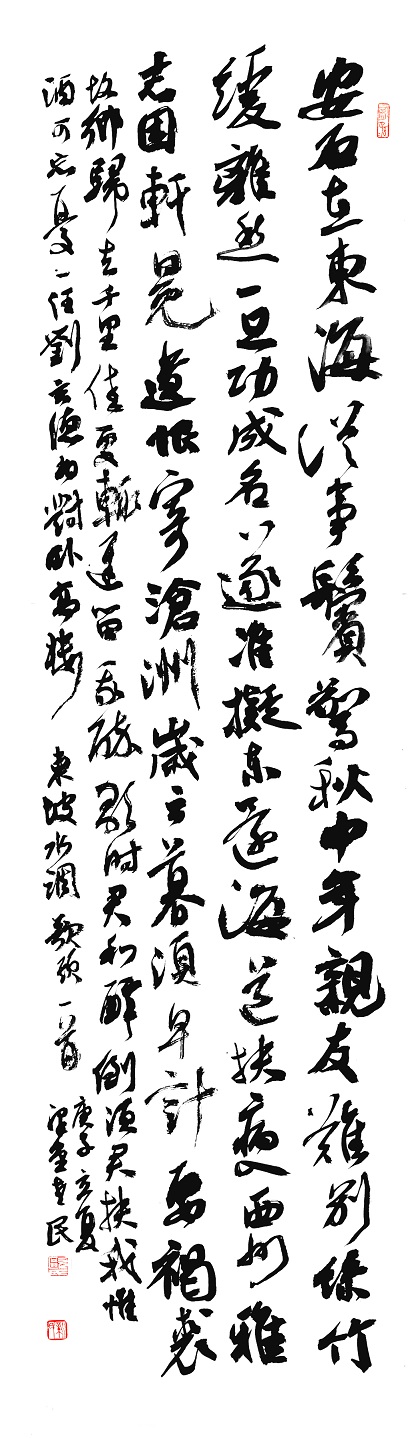 安石在東海從事鬢驚秋中年親友難別絲竹
緩離愁一旦功成名遂准擬東還海道扶病入西州雅
志困軒冕遺恨寄滄洲歲云暮須早計要褐裘
故鄉歸去千里佳處輒遲留我醉歌時君和醉倒須君扶我惟
酒可忘憂一任劉玄德相對卧高樓 東坡水調歌頭一首
庚子立夏
民